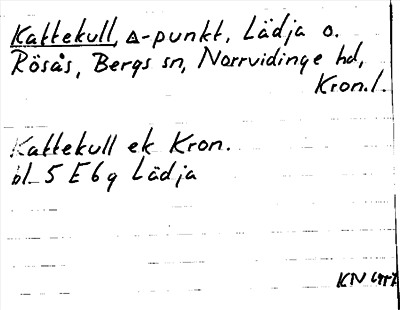 Kattekull, △-punkt, Lädja o.
Rösås, Bergs sn, Norrvidinge hd,
Kron.l.
Kattekull ek Kron.
bl 5 E 6 g Lädja
KN